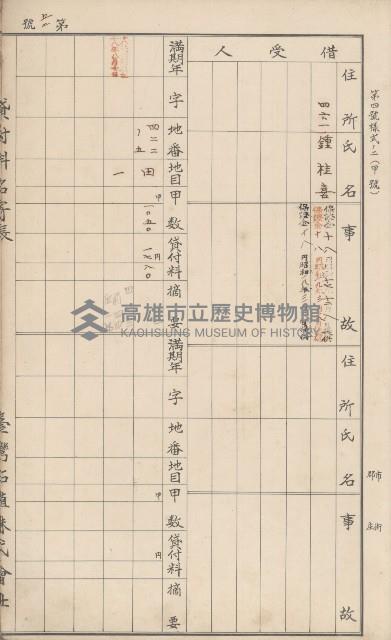 第四號樣式ノ二(甲號)
市郡
街庄
借受人
住所氏名
事故
四六一
鍾桂喜
住所氏名
事故
滿期年
字
地番
地目
甲數
貸付料
摘要
四二二ノ五
田
一
甲
一〇五〇
円
滿期年
字
地番
地目
甲數
貸付料
摘要
甲
円
第
號
貸付料名寄帳
臺灣拓殖株式會社
高雄市立歷史博物館
KAOHSIUNG MUSEUM OF HISTORY